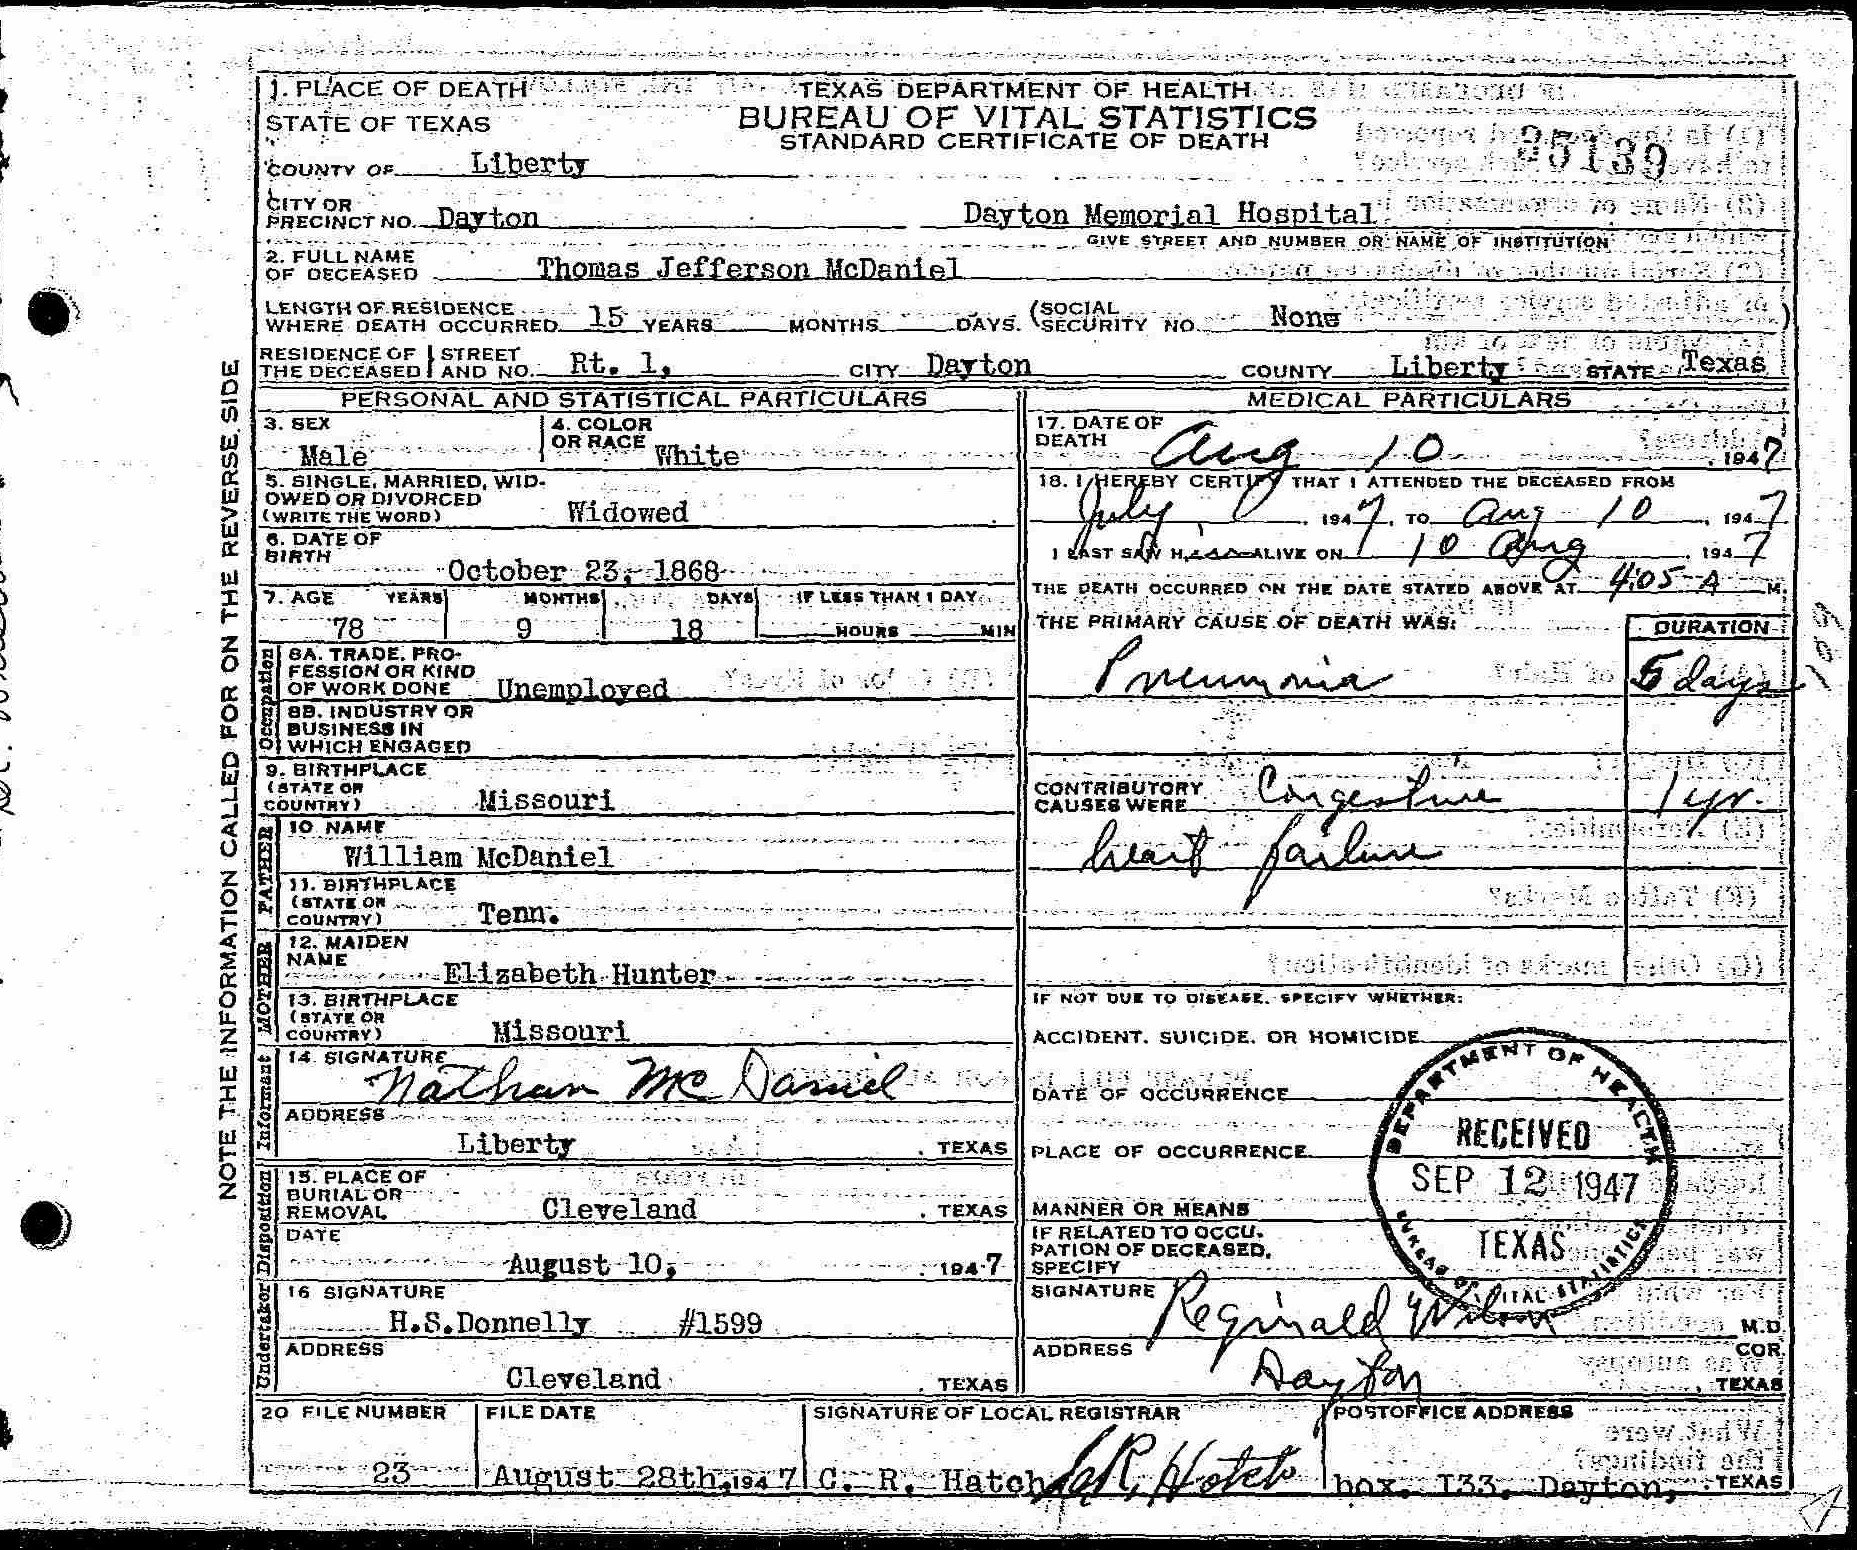 1. PLACE OF DEATH
STATE OF TEXAS
TEXAS DEPARTMENT OF HEALTH
BUREAU OF VITAL STATISTICS
STANDARD CERTIFICATE OF DEATH
COUNTY OF Liberty
CITY OR PRECINCT NO. Dayton Dayton Memorial Hospital
GIVE STREET AND NUMBER OR NAME OF INSTITUTION
2. FULL NAME OF DECEASED Thomas Jefferson McDaniel
LENGTH OF RESIDENCE WHERE DEATH OCCURRED 15 YEARS MONTHS DAYS. (SOCIAL SECURITY NO. None )
RESIDENCE OF THE DECEASED STREET AND NO. Rt. 1, CITY Dayton COUNTY Liberty STATE Texas
NOTE THE INFORMATION CALLED FOR ON THE REVERSE SIDE
PERSONAL AND STATISTICAL PARTICULARS
3. SEX Male
4. COLOR OR RACE White
5. SINGLE, MARRIED, WIDOWED OR DIVORCED (WRITE THE WORD) Widowed
6. DATE OF BIRTH October 23, 1868
7. AGE YEARS MONTHS DAYS IF LESS THAN 1 DAY
78 9 18 HOURS MIN
Occupation
8A. TRADE, PROFESSION OR KIND OF WORK DONE Unemployed
8B. INDUSTRY OR BUSINESS IN WHICH ENGAGED
9. BIRTHPLACE (STATE OR COUNTRY) Missouri
FATHER
10 NAME William McDaniel
11. BIRTHPLACE (STATE OR COUNTRY) Tenn.
MOTHER
12. MAIDEN NAME Elizabeth Hunter
13. BIRTHPLACE (STATE OR COUNTRY) Missouri
Informant
14 SIGNATURE Nathan McDaniel
ADDRESS Liberty , TEXAS
Disposition
15. PLACE OF BURIAL OR REMOVAL Cleveland , TEXAS
DATE August 10, , 1947
Undertaker
16 SIGNATURE H.S.Donnelly #1599
ADDRESS Cleveland , TEXAS
MEDICAL PARTICULARS
17. DATE OF DEATH Aug 10 , 1947
18. I HEREBY CERTIFY THAT I ATTENDED THE DECEASED FROM
July , 1947, TO Aug 10 , 1947
I LAST SAW HIM ALIVE ON 10 Aug , 1947
THE DEATH OCCURRED ON THE DATE STATED ABOVE AT 4:05 A M.
THE PRIMARY CAUSE OF DEATH WAS: DURATION
Pneumonia 5 days
CONTRIBUTORY CAUSES WERE Congestive 1 yr.
heart failure
IF NOT DUE TO DISEASE, SPECIFY WHETHER:
ACCIDENT, SUICIDE, OR HOMICIDE
DATE OF OCCURRENCE
PLACE OF OCCURRENCE
MANNER OR MEANS
IF RELATED TO OCCUPATION OF DECEASED, SPECIFY
DEPARTMENT OF HEALTH
RECEIVED
SEP 12 1947
TEXAS
BUREAU OF VITAL STATISTICS
SIGNATURE Reginald Wilson M.D.
COR.
ADDRESS Dayton , TEXAS
20 FILE NUMBER FILE DATE SIGNATURE OF LOCAL REGISTRAR POSTOFFICE ADDRESS
23 August 28th, 1947 C. R. Hatch box. 133. Dayton, , TEXAS